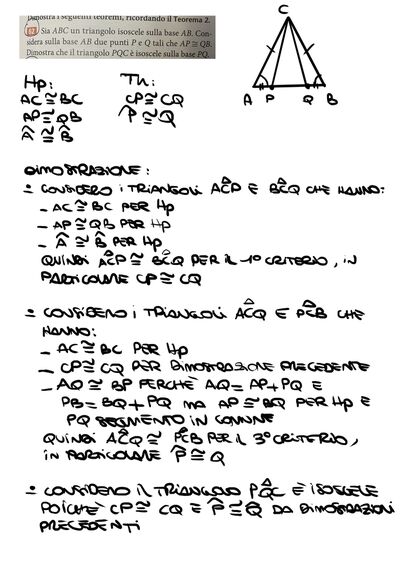 Dimostra i seguenti teoremi, ricordando il Teorema 2.
62 Sia ABC un triangolo isoscele sulla base AB. Con-
sidera sulla base AB due punti P e Q tali che AP ≅ QB.
Dimostra che il triangolo PQC è isoscele sulla base PQ.
C
A P Q B
Hp: Th:
AC ≅ BC CP ≅ CQ
AP ≅ QB P̂ ≅ Q̂
Â ≅ B̂
DIMOSTRAZIONE:
- CONSIDERO I TRIANGOLI AĈP E BĈQ CHE HANNO:
- AC ≅ BC PER Hp
- AP ≅ QB PER Hp
- Â ≅ B̂ PER Hp
QUINDI AĈP ≅ BĈQ PER IL 1° CRITERIO, IN
PARTICOLARE CP ≅ CQ
- CONSIDERO I TRIANGOLI AĈQ E PĈB CHE
HANNO:
- AC ≅ BC PER Hp
- CP ≅ CQ PER DIMOSTRAZIONE PRECEDENTE
- AQ ≅ BP PERCHÈ AQ = AP + PQ E
PB = BQ + PQ MA AP ≅ BQ PER Hp E
PQ SEGMENTO IN COMUNE
QUINDI AĈQ ≅ PĈB PER IL 3° CRITERIO,
IN PARTICOLARE P̂ ≅ Q̂
- CONSIDERO IL TRIANGOLO PQ̂C È ISOSCELE
POICHÈ CP ≅ CQ E P̂ ≅ Q̂ DA DIMOSTRAZIONI
PRECEDENTI